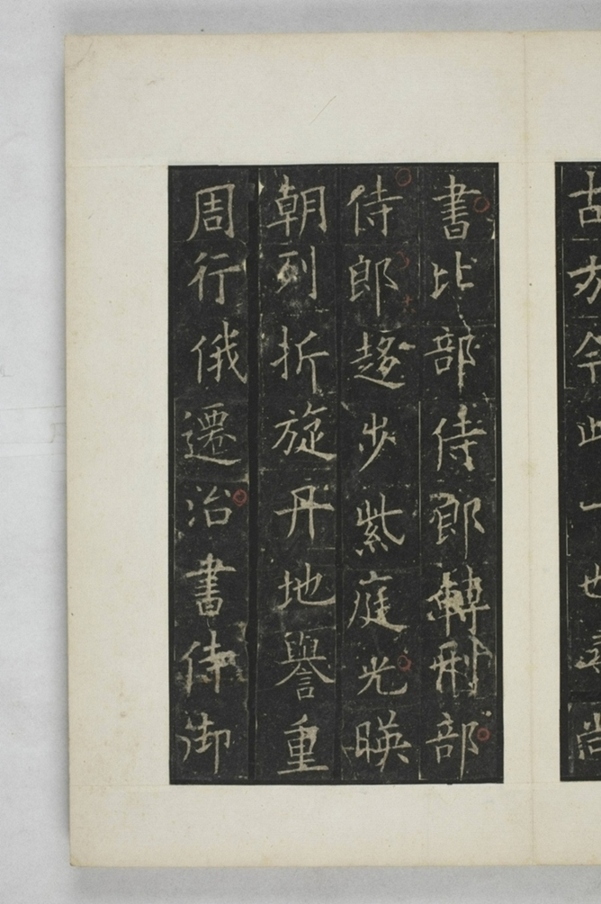 古亦令此一也尋尚
書比部侍郎轉刑部
侍郎趍步紫庭光暎
朝列折旋丹地譽重
周行俄遷治書侍御